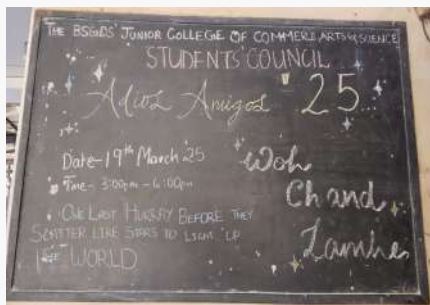 THE BSGDS' JUNIOR COLLEGE OF COMMERCE ARTS & SCIENCE
STUDENTS' COUNCIL
Adios Amigos '25...
Date - 19th March '25
Time - 3:00pm - 6:00pm
Woh
Chand
Lamhe
ONE LAST HURRAY BEFORE THEY
SCATTER LIKE STARS TO LIGHT UP
THE WORLD